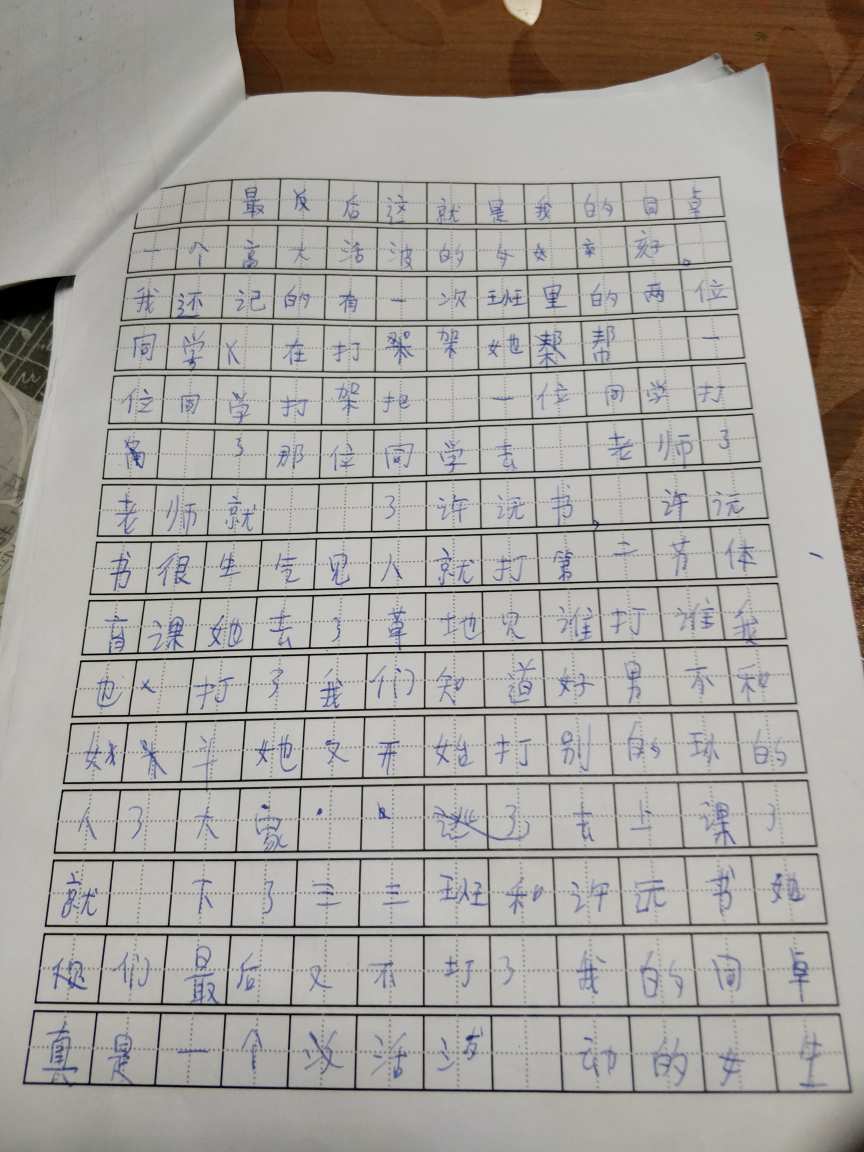 最后这就是我的同卓
一个高大活波的女
我还记的有一次班里的两位
同学在打架她帮一
位同学打架把一位同学打
了那位同学去老师了
老师就了许远书，许远
书很生气见人就打第二节体
育课她去了草地见谁打谁我
也打了我们知道好男不和
斗她又开始打别的班的
人了大家去上课了
就下了三三班和许远书她
们最后又不打了我的同卓
真是一个活波动的女生